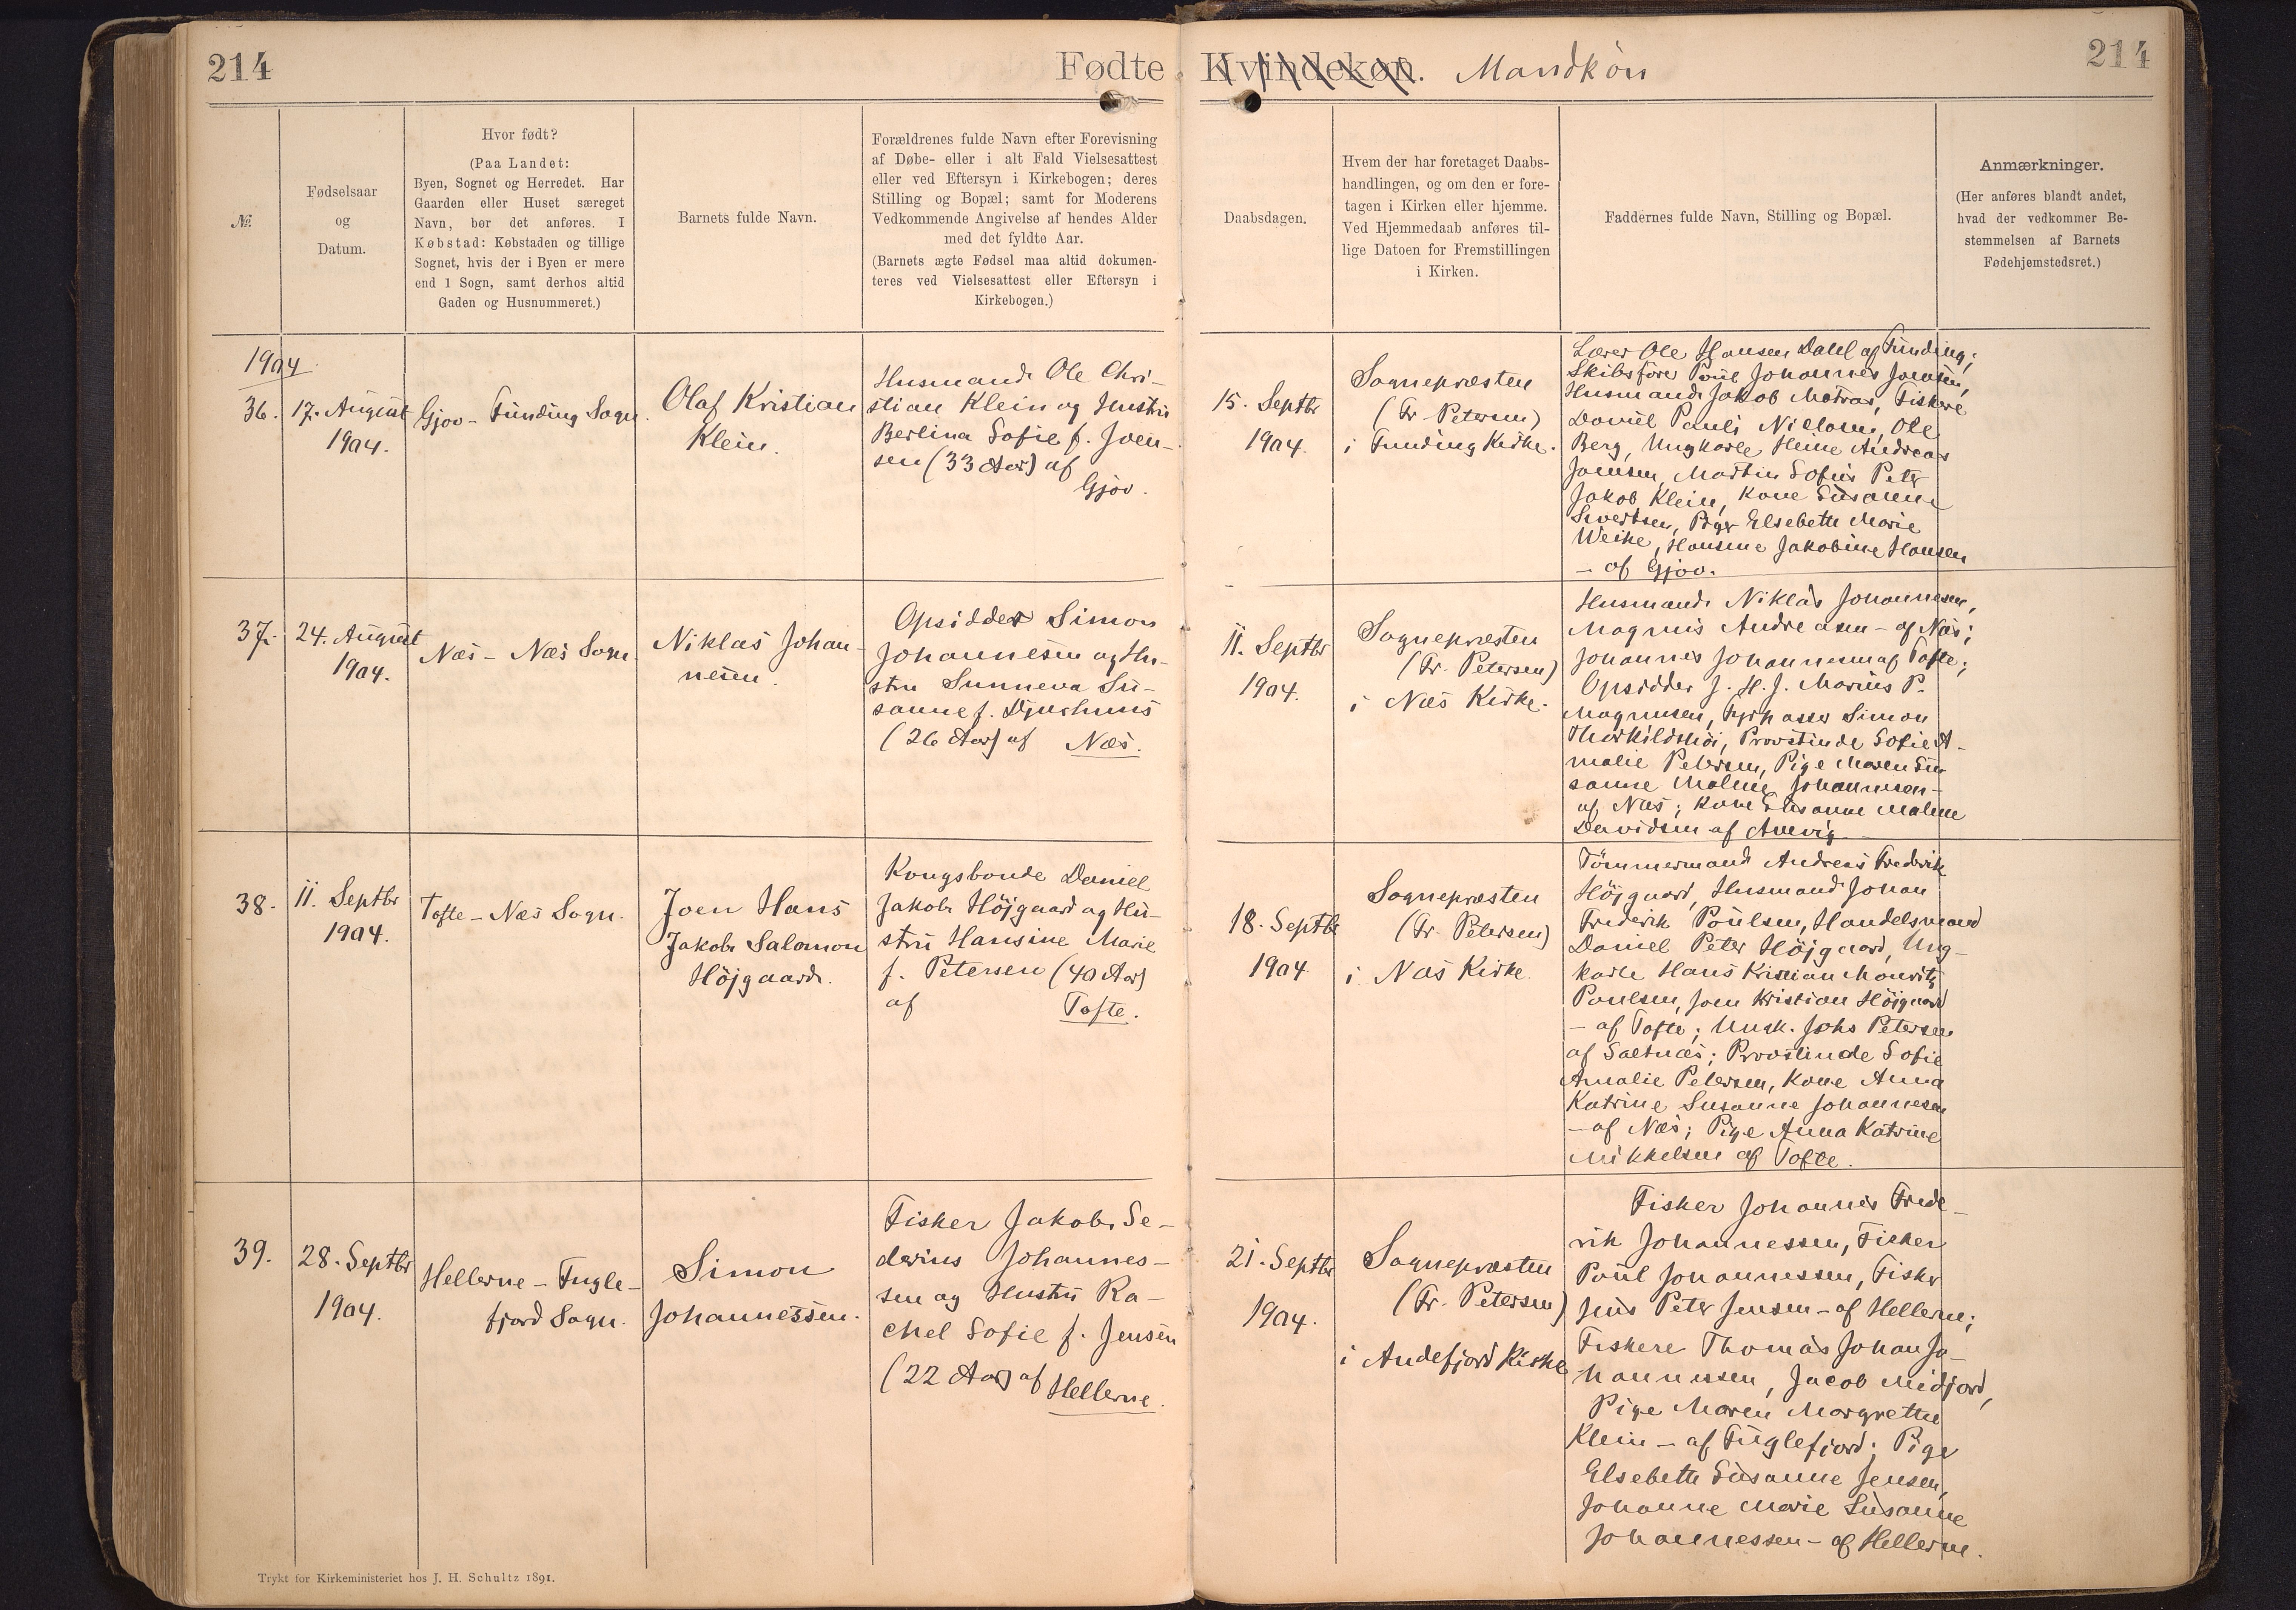 214
Fødte
Kvindekøn. Mandkön
214
№
Fødselsaar
og
Datum.
Hvor født?
(Paa Landet:
Byen, Sognet og Herredet. Har
Gaarden eller Huset særeget
Navn, bør det anføres. I
Købstad: Købstaden og tillige
Sognet, hvis der i Byen er mere
end 1 Sogn, samt derhos altid
Gaden og Husnummeret.)
Barnets fulde Navn.
Forældrenes fulde Navn efter Forevisning
af Døbe- eller i alt Fald Vielsesattest
eller ved Eftersyn i Kirkebogen; deres
Stilling og Bopæl; samt for Moderens
Vedkommende Angivelse af hendes Alder
med det fyldte Aar.
(Barnets ægte Fødsel maa altid dokumen-
teres ved Vielsesattest eller Eftersyn i
Kirkebogen.)
Daabsdagen.
Hvem der har foretaget Daabs-
handlingen, og om den er fore-
tagen i Kirken eller hjemme.
Ved Hjemmedaab anføres til-
lige Datoen for Fremstillingen
i Kirken.
Faddernes fulde Navn, Stilling og Bopæl.
Anmærkninger.
(Her anføres blandt andet,
hvad der vedkommer Be-
stemmelsen af Barnets
Fødehjemstedsret.)
1904
36.
17. August
1904.
Gjov - Funding Sogn.
Olaf Kristian
Klein.
Husmand Ole Chri-
stian Klein og Hustru
Berlina Sofie f. Joen-
sen (33 Aar) af
Gjov.
15. Septbr
1904.
Sognepræsten
(Fr. Petersen)
i Funding Kirke.
Lærer Ole Hansen Dahl af Funding;
Skibsfører Poul Johannes Joensen,
Husmand Jakob Matras, Fiskere
Daniel Pauli Niclasen, Ole
Berg, Ungkarle Heine Andreas
Joensen, Martin Sofus Peter
Jakob Klein, Kone Susanne
Sivertsen, Piger Elsebeth Marie
Weihe, Hansine Jakobine Hansen
- af Gjov.
37.
24. August
1904.
Næs - Næs Sogn
Niklas Johan-
nesen.
Opsidder Simon
Johannesen og Hu-
stru Sunneva Su-
sanne f. Djurhuus
(26 Aar) af Næs.
11. Septbr
1904.
Sognepræsten
(Fr. Petersen)
i Næs Kirke.
Husmand Niklas Johannesen,
Magnus Andreasen - af Næs;
Johannes Johannesen af Tofte;
Opsidder J. H. J. Marius P.
Magnusen, Fyrpasser Simon
Thorkildshöi, Provstinde Sofie A-
malie Petersen, Pige Maren Su-
sanne Malene Johannesen -
af Næs; Kone Susanne Malene
Davidsen af Arevig
38.
11. Septbr
1904.
Tofte - Næs Sogn.
Joen Hans
Jakob Salomon
Höjgaard.
Kongsbonde Daniel
Jakob Höjgaard og Hu-
stru Hansine Marie
f. Petersen (40 Aar)
af Tofte.
18. Septbr
1904
Sognepræsten
(Fr. Petersen)
i Næs Kirke.
Tömmermand Andreas Frederik
Höjgaard, Husmand Johan
Frederik Poulsen, Handelsmand
Daniel Peter Höjgaard, Ung-
karle Hans Kristian Mouritz
Poulsen, Joen Kristian Höjgaard
- af Tofte; Ungk. Johs Petersen
af Saltnæs; Provstinde Sofie
Amalie Petersen, Kone Anna
Katrine Susanne Johannesen
- af Næs; Pige Anna Katrine
Mikkelsen af Tofte.
39.
28. Septbr
1904.
Hellerne - Fugle-
fjord Sogn.
Simon
Johannessen.
Fisker Jakob Se-
derius Johannes-
sen og Hustru Ra-
chel Sofie f. Jensen
(22 Aar) af Hellerne.
21. Septbr
1904.
Sognepræsten
(Fr. Petersen)
i Andefjord Kirke
Fisker Johannes Frede-
rik Johannessen, Fisker
Poul Johannessen, Fisker
Jens Peter Jensen - af Hellerne;
Fiskere Thomas Johan Jo-
hannessen, Jacob Midjord,
Pige Maren Margrethe
Klein - af Fuglefjord; Pige
Elsebeth Susanne Jensen,
Johanne Marie Susanne
Johannessen - af Hellerne.
Trykt for Kirkeministeriet hos J. H. Schultz 1891.